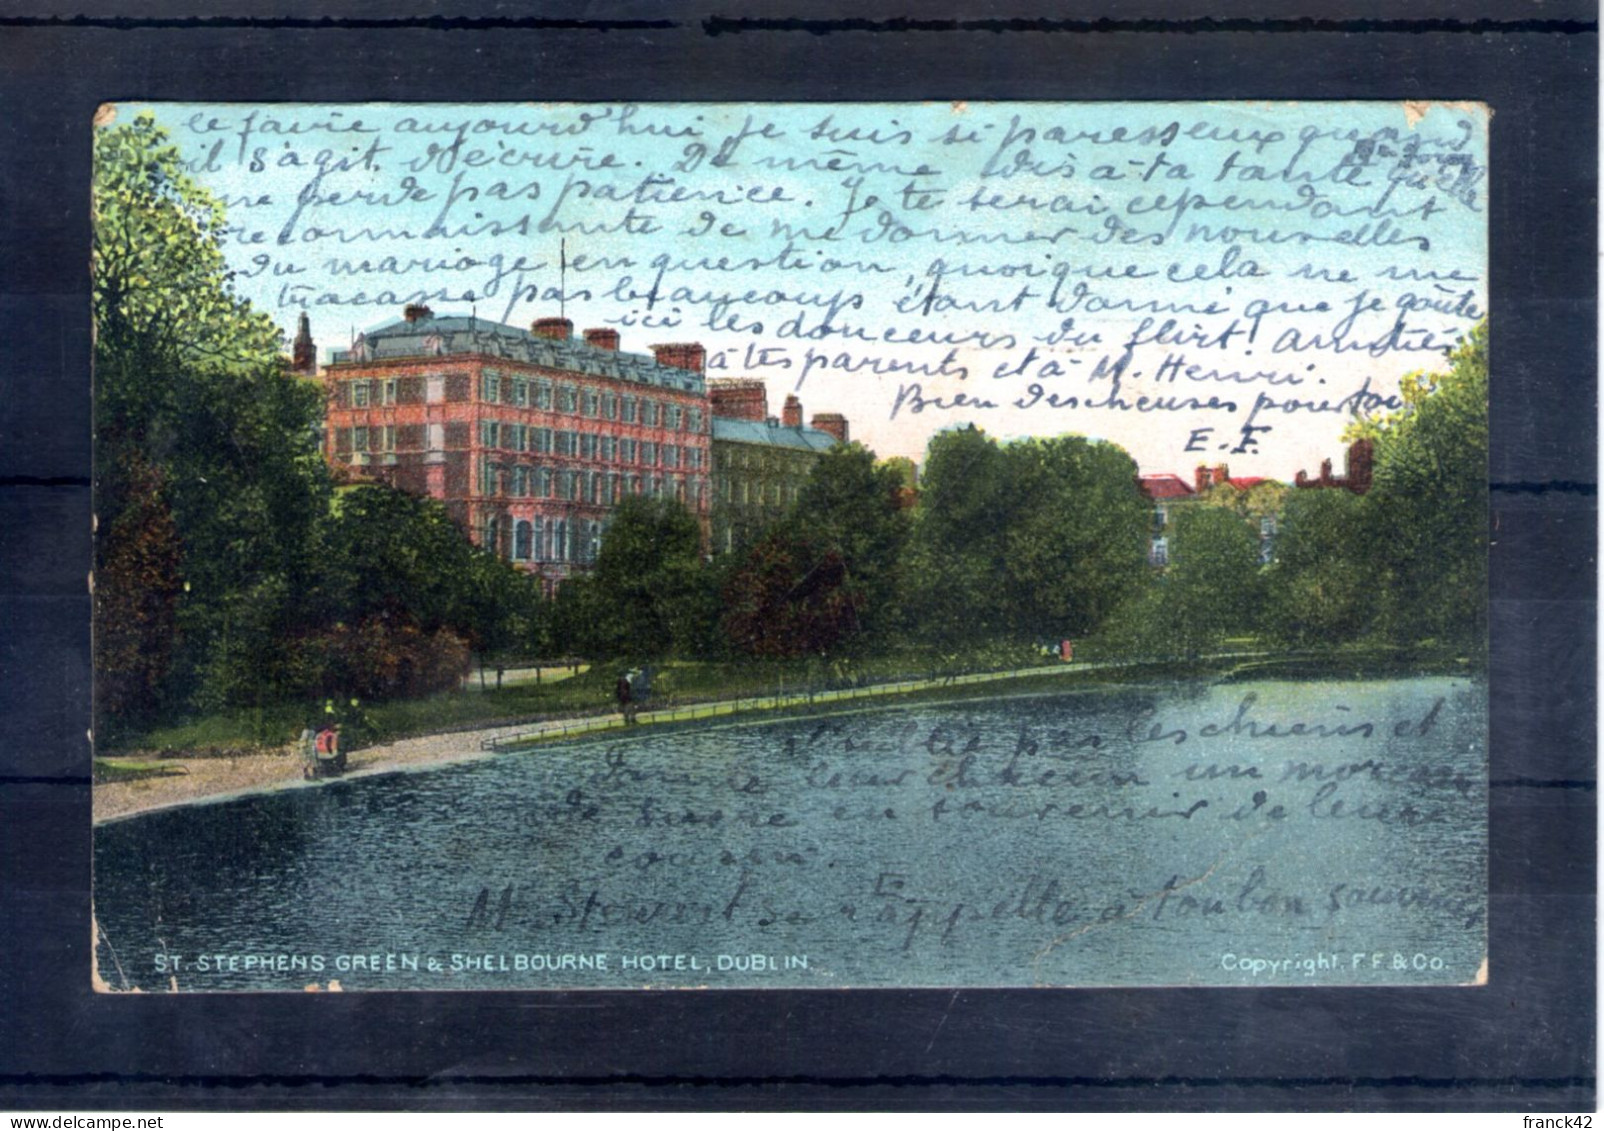 le faire aujourd'hui je suis si paresseux quand
il s'agit d'écrire. De même dis à ta tante qu'elle
ne perde pas patience. Je te serai cependant
reconnaissante de me donner des nouvelles
du mariage en question, quoique cela ne me
tracasse pas beaucoup étant donné que je goûte
ici les douceurs du flirt! Amitiés
à tes parents et à M. Henri.
Bien des choses pour toi
E. F.
n'oublie pas les chiens et
donne leur chacun un morceau
de sucre en souvenir de leur
cousin.
Mr Stewart se rappelle à ton bon souvenir
ST. STEPHENS GREEN & SHELBOURNE HOTEL, DUBLIN.
Copyright, F F & Co.
franck42